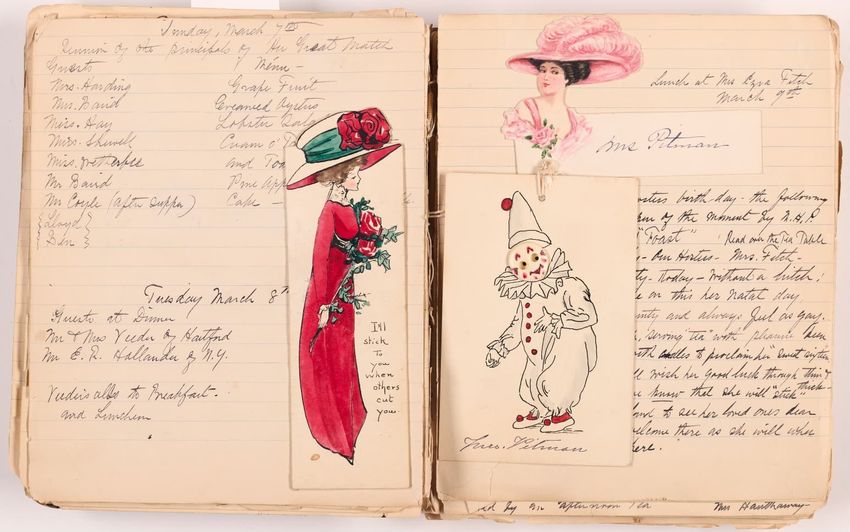 Sunday, March 7th
Reunion of the principals of the Great Match
Guests Menu -
Mrs. Harding Grape Fruit
Mrs. Baird Creamed Oysters
Miss. Hay Lobster
Miss. Cream
Miss. and
Mr Baird Pine
Mr Coyle (after supper) Cake -
Lloyd
Den
Tuesday March 8th
Guests at Dinner
Mr & Mrs Veeder of Hartford
Mr E. R. Hollander of N.Y.
Veeders also to Breakfast.
and Luncheon
I'll
stick
To
you
when
others
cut
you
Lunch at Mrs Ezra Fitch
March 9th
Mrs Pitman
birth day - the following
of the moment by N. H. P.
"Toast" Read over the Tea Table
- Our Hostess - Mrs. Fitch -
- today - without a hitch!
on this her natal day
and always just as gay.
serving "tea" with pleasure keen
to proclaim her "sweet
wish her good luck through thin &
thick -
know that she will "stick"
and to see her loved ones dear
welcome there as she will when
here.
Mrs. Pitman
by an afternoon Tea Mrs Hawthaway -